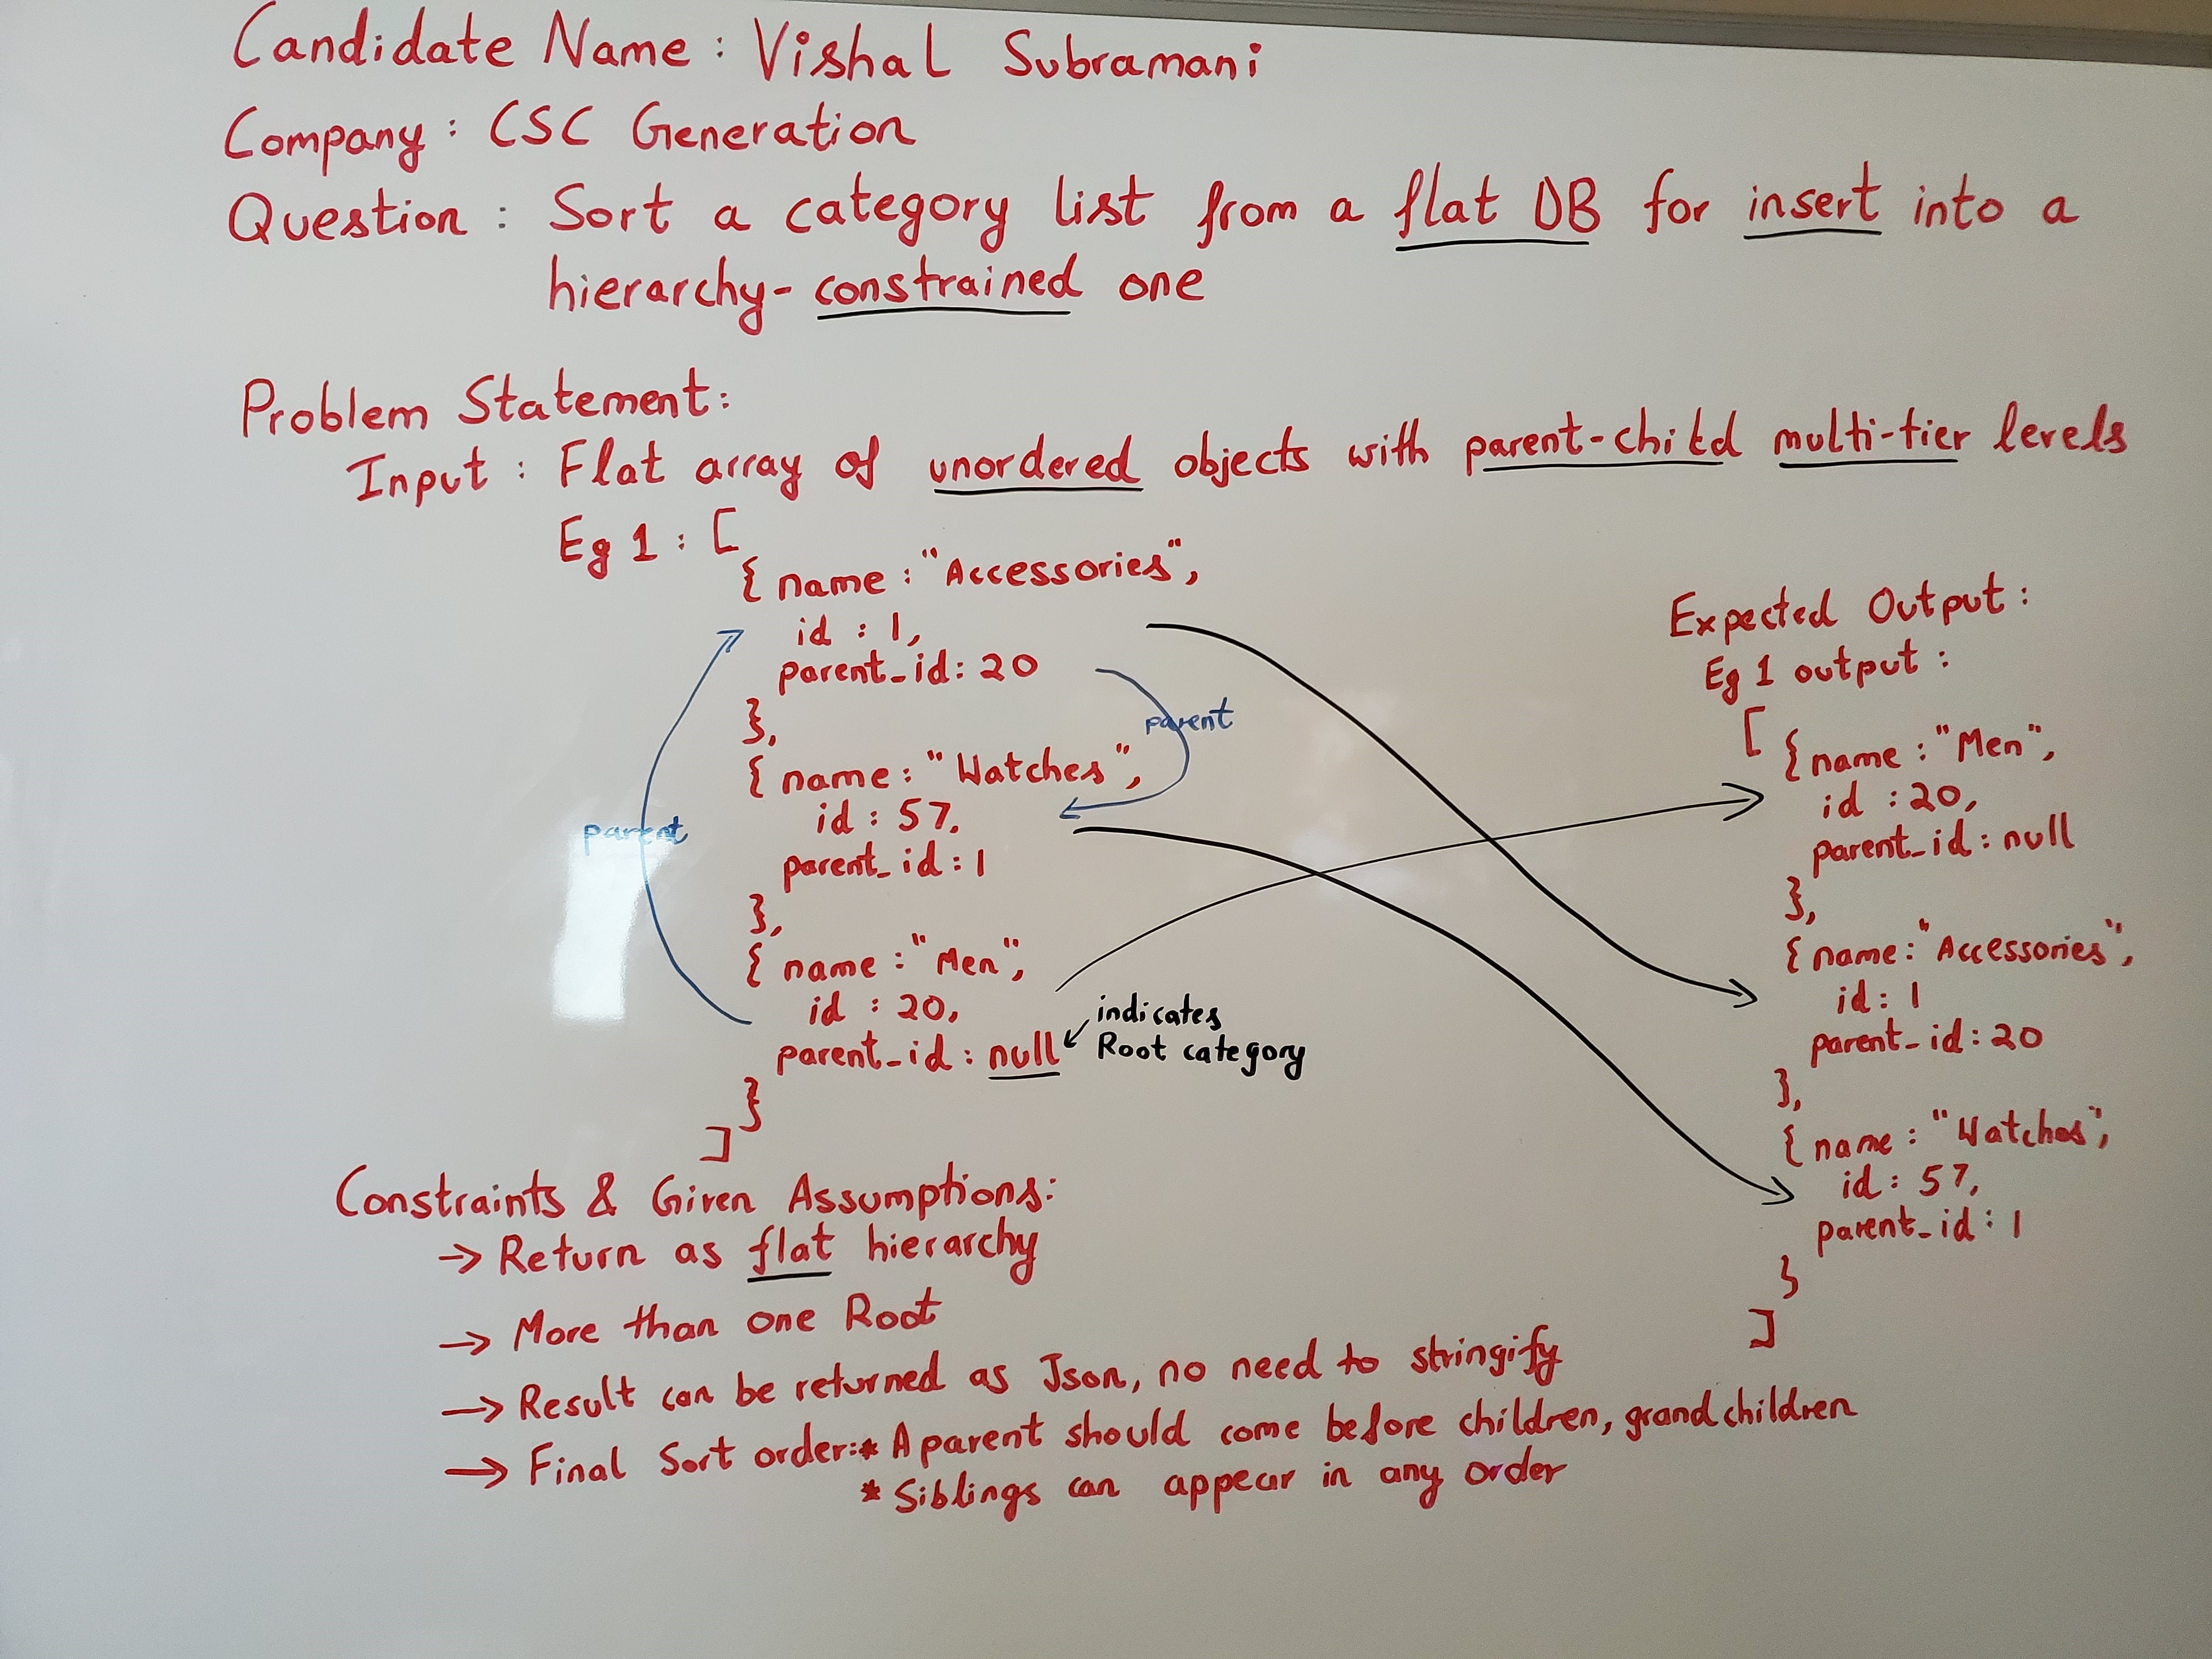 Candidate Name : Vishal Subramani
Company : CSC Generation
Question : Sort a category list from a flat DB for insert into a
hierarchy-constrained one
Problem Statement:
Input : Flat array of unordered objects with parent-child multi-tier levels
Eg 1 : [
{ name : "Accessories",
id : 1,
parent_id: 20
},
parent
{ name: "Watches",
id : 57,
parent_id: 1
},
parent
{ name : "Men",
id : 20,
parent_id : null
}
]
indicates
Root category
Expected Output :
Eg 1 output :
[ { name : "Men",
id : 20,
parent_id : null
},
{ name: "Accessories",
id: 1
parent_id: 20
},
{ name : "Watches",
id : 57,
parent_id : 1
}
]
Constraints & Given Assumptions:
→ Return as flat hierarchy
→ More than one Root
→ Result can be returned as Json, no need to stringify
→ Final Sort order:* A parent should come before children, grandchildren
* Siblings can appear in any order